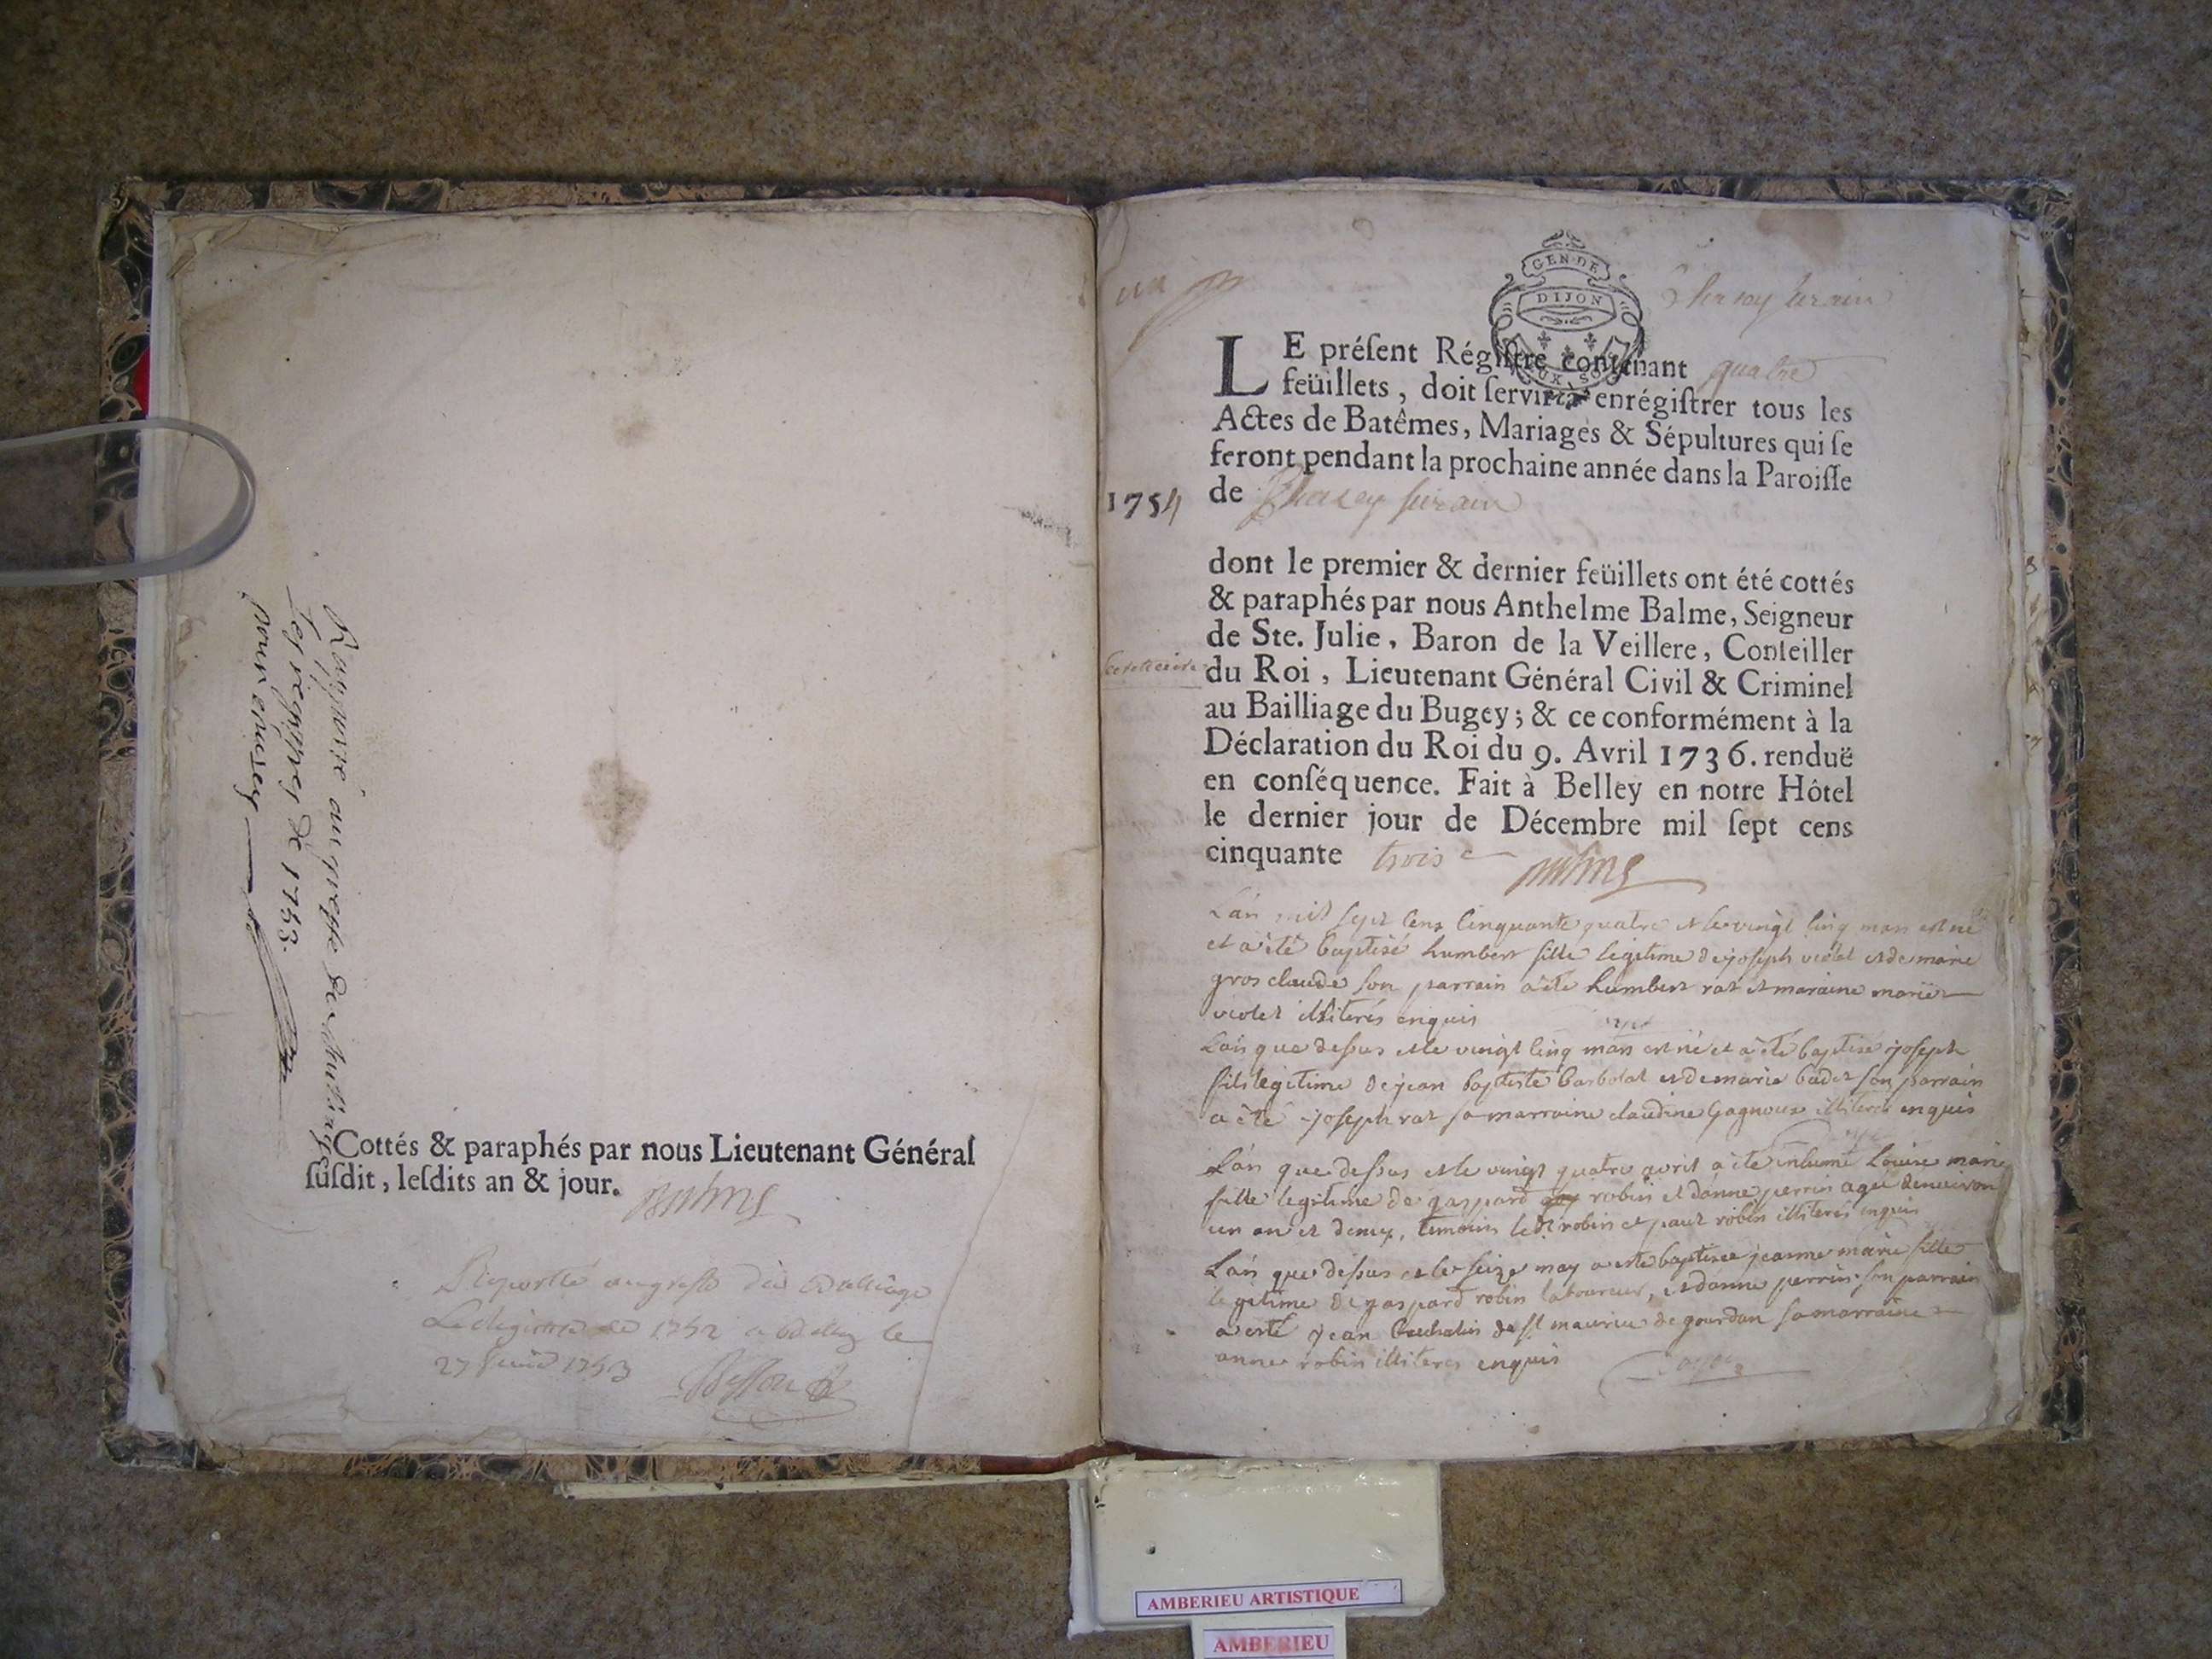 Rapporté au greffe du bailliage
les registres de 1753.
pour
Cottés & paraphés par nous Lieutenant Général
ſuſdit, leſdits an & jour.
Balme
Raporté au greffe du Bailliage
Le Registre de 1752 a Belley le
27 1753
GEN·DE
DIJON
DEUX SOLS
Chasey sur ain
LE préſent Régiſtre contenant quatre
feüillets, doit ſervir à enrégiſtrer tous les
Actes de Batêmes, Mariages & Sépultures qui ſe
feront pendant la prochaine année dans la Paroiſſe
1754
de Chasey sur ain
dont le premier & dernier feüillets ont été cottés
& paraphés par nous Anthelme Balme, Seigneur
de Ste. Julie, Baron de la Veillere, Conſeiller
du Roi, Lieutenant Général Civil & Criminel
au Bailliage du Bugey; & ce conformément à la
Déclaration du Roi du 9. Avril 1736. renduë
en conſéquence. Fait à Belley en notre Hôtel
le dernier jour de Décembre mil ſept cens
cinquante trois
Balme
L'an mil sept cens cinquante quatre et le vingt cinq mars est né
et a été baptisé humbert fils legitime de joseph violet et de marie
gros claude son parrain a été humbert rat et maraine marie
violet illiterés enquis
L'an que dessus et le vingt cinq mars est né et a été baptisé joseph
fils legitime de jean baptiste barbolat et de marie badet son parrain
a été joseph rat sa marraine claudine gagnoux illiterés enquis
L'an que dessus et le vingt quatre avril a été inhumé Louise marie
fille legitime de gaspard robin et d'anne perrin agée d'environ
un an et demy, temoins ledt robin et paul robin illiterés enquis
L'an que dessus et le seize may a esté baptisée jeanne marie fille
legitime de gaspard robin laboureur, et d'anne perrin son parrain
a esté jean de st maurice de gourdan sa marraine
anne robin illiterés enquis
AMBERIEU ARTISTIQUE
AMBERIEU